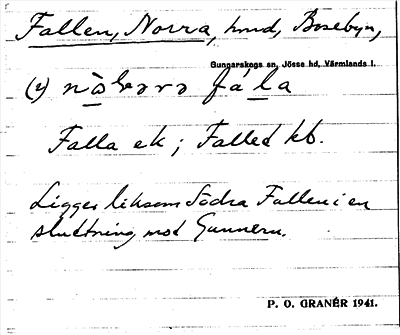 Fallen, Norra, hmd, Bosebyn,
Gunnarskogs sn, Jösse hd, Värmlands l.
(y) nò̱rərə fá̱la
Falla ek; Falled kb.
Ligger liksom Södra Fallen i en
sluttning mot Gunnern.
P. O. GRANÉR 1941.